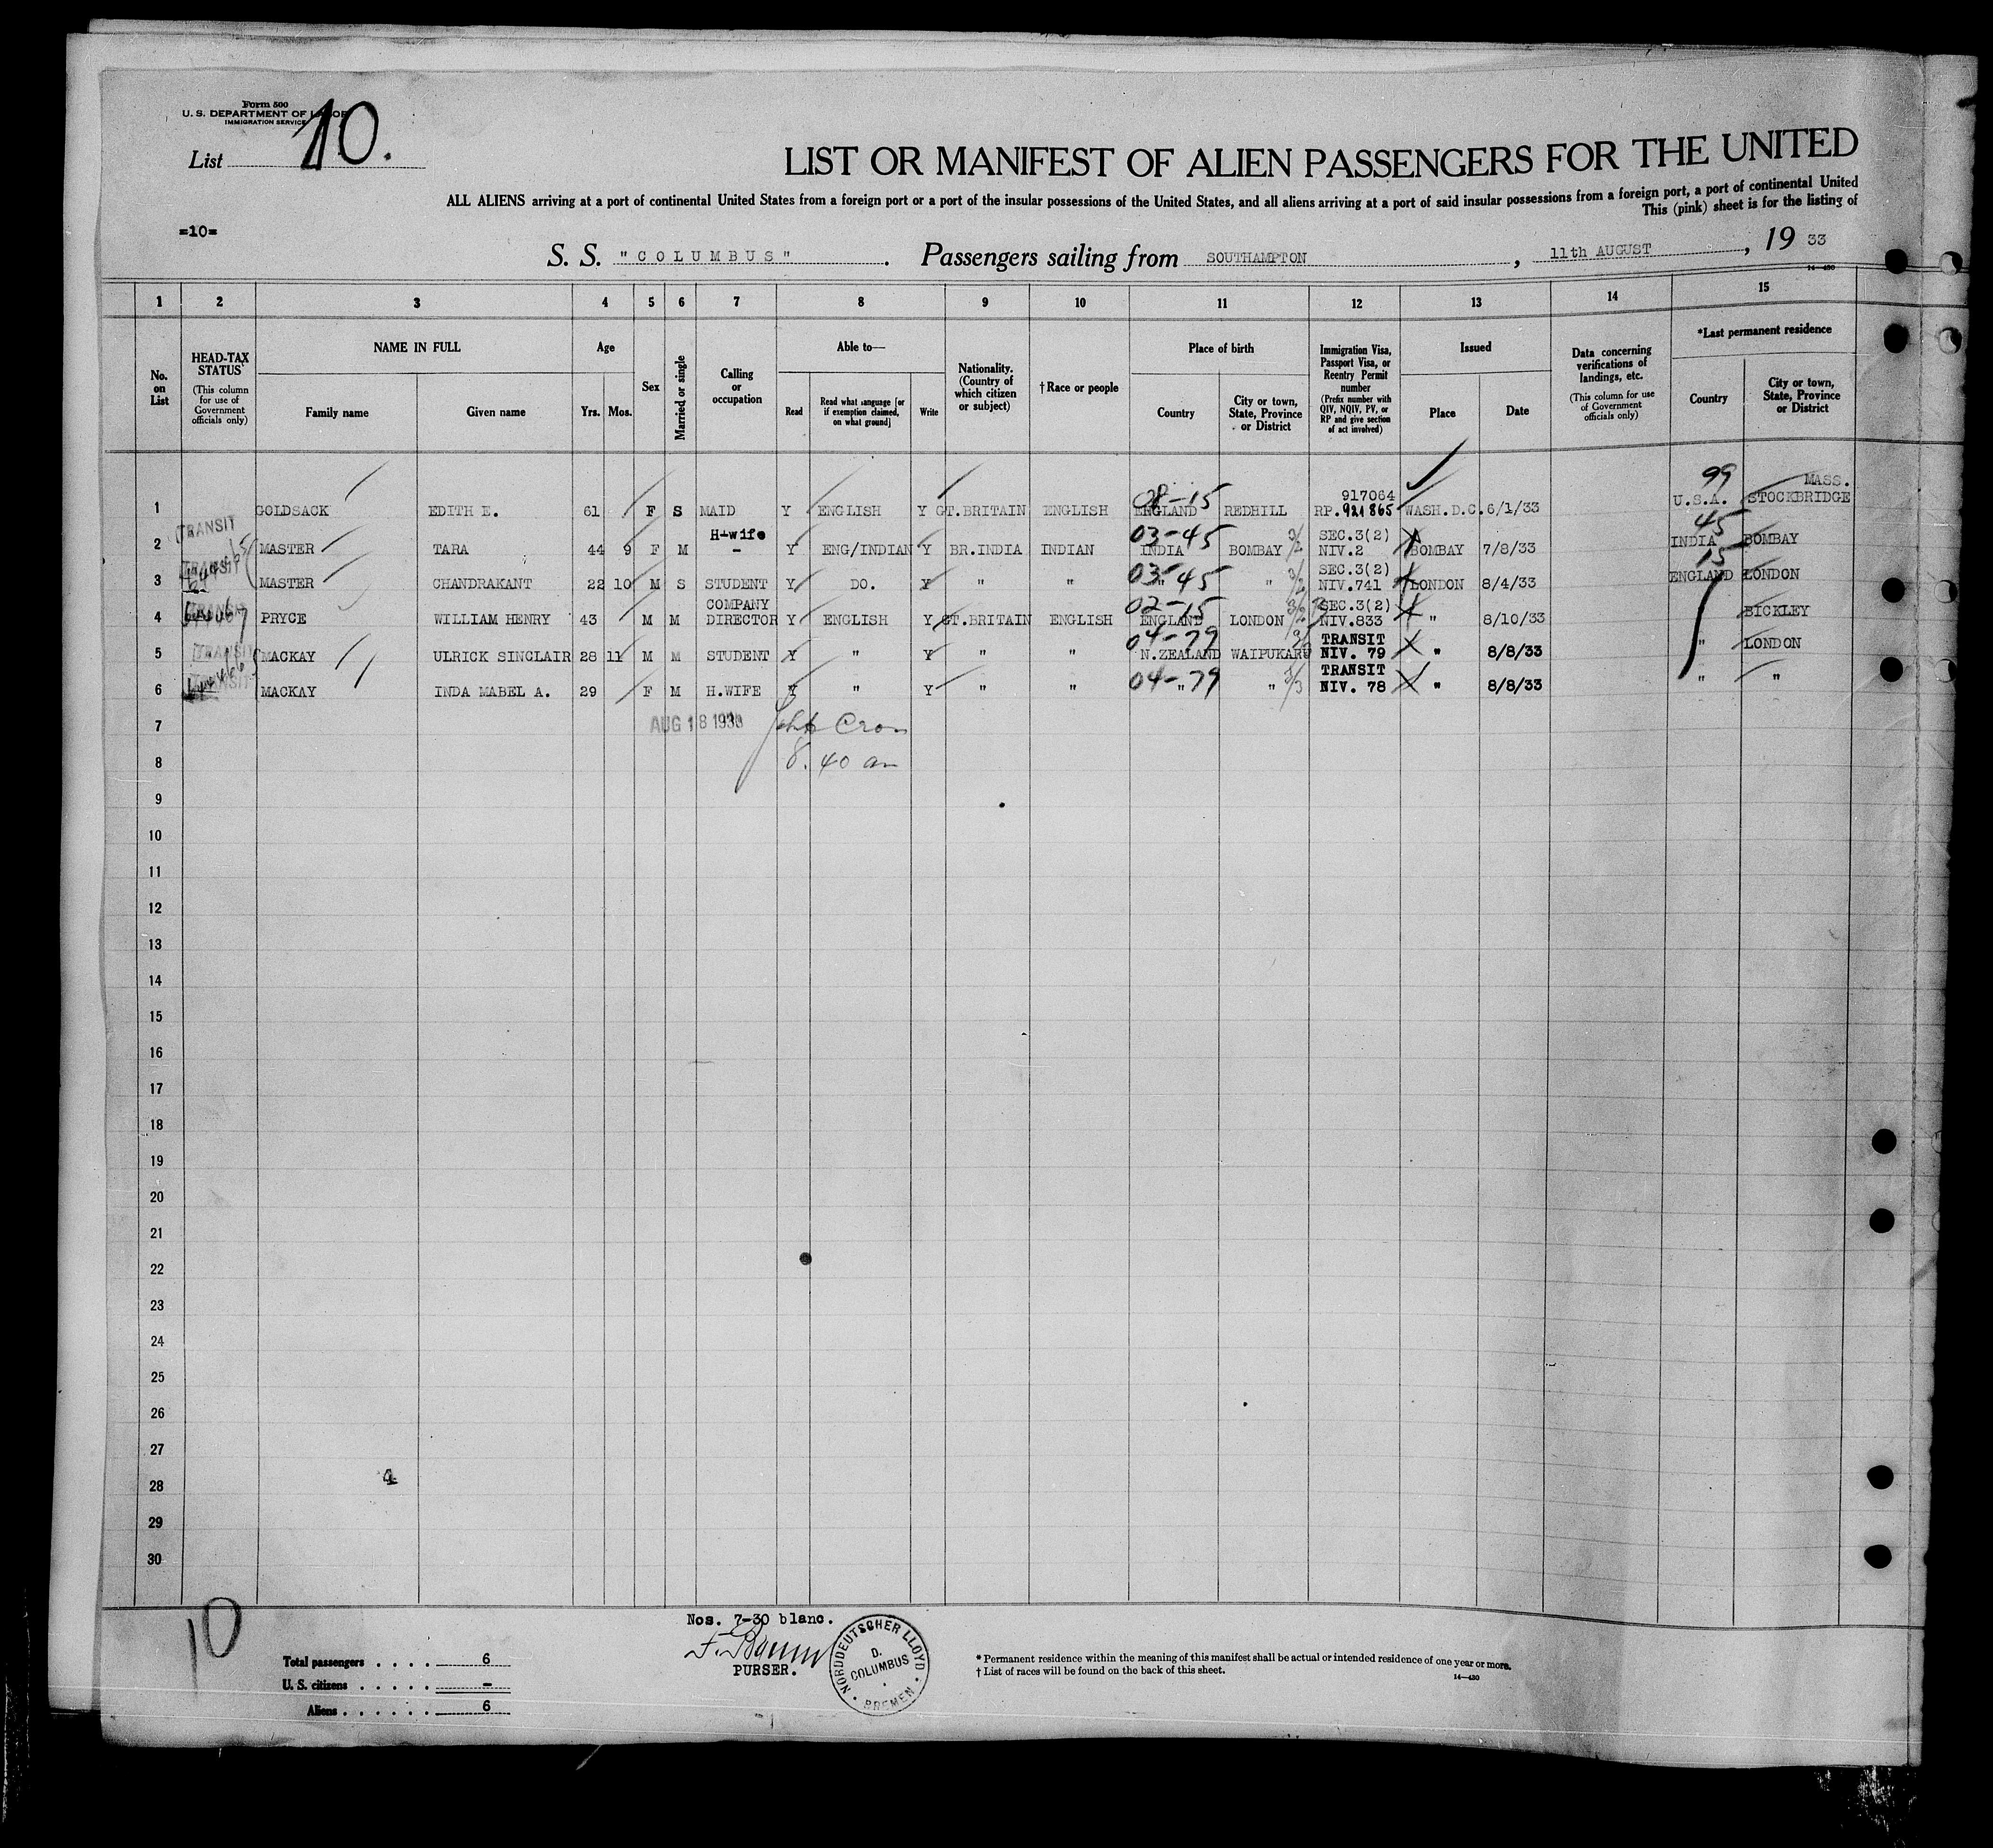 Form 500
U. S. DEPARTMENT OF LABOR
IMMIGRATION SERVICE
List 10.
LIST OR MANIFEST OF ALIEN PASSENGERS FOR THE UNITED
ALL ALIENS arriving at a port of continental United States from a foreign port or a port of the insular possessions of the United States, and all aliens arriving at a port of said insular possessions from a foreign port, a port of continental United
This (pink) sheet is for the listing of
=10=
S. S. "COLUMBUS". Passengers sailing from SOUTHAMPTON, 11th AUGUST, 19 33
14-430
1 2 3 4 5 6 7 8 9 10 11 12 13 14 15
No. on List
HEAD-TAX STATUS (This column for use of Government officials only)
NAME IN FULL
Family name Given name
Age
Yrs. Mos.
Sex
Married or single
Calling or occupation
Able to—
Read Read what language [or if exemption claimed, on what ground] Write
Nationality. (Country of which citizen or subject)
†Race or people
Place of birth
Country City or town, State, Province or District
Immigration Visa, Passport Visa, or Reentry Permit number (Prefix number with QIV, NQIV, PV, or RP and give section of act involved)
Issued
Place Date
Data concerning verifications of landings, etc. (This column for use of Government officials only)
*Last permanent residence
Country City or town, State, Province or District
08-15 917064 99 MASS.
1 GOLDSACK EDITH E. 61 F S MAID Y ENGLISH Y GT.BRITAIN ENGLISH ENGLAND REDHILL RP.921865 WASH.D.C. 6/1/33 U.S.A. STOCKBRIDGE
TRANSIT H-wife 03-45 SEC.3(2) 45
2 MASTER TARA 44 9 F M - Y ENG/INDIAN Y BR.INDIA INDIAN INDIA BOMBAY NIV.2 BOMBAY 7/8/33 INDIA BOMBAY
TRANSIT 03-45 SEC.3(2) 15
3 MASTER CHANDRAKANT 22 10 M S STUDENT Y DO. Y " " " " NIV.741 LONDON 8/4/33 ENGLAND LONDON
TRANSIT COMPANY 02-15 SEC.3(2)
4 PRYCE WILLIAM HENRY 43 M M DIRECTOR Y ENGLISH Y GT.BRITAIN ENGLISH ENGLAND LONDON NIV.833 " 8/10/33 BICKLEY
TRANSIT 04-79 TRANSIT
5 MACKAY ULRICK SINCLAIR 28 11 M M STUDENT Y " Y " " N.ZEALAND WAIPUKARU NIV. 79 " 8/8/33 " LONDON
TRANSIT 04-79 TRANSIT
6 MACKAY INDA MABEL A. 29 F M H.WIFE Y " Y " " " " NIV. 78 " 8/8/33 " "
7 AUG 18 1933 John Cron
8 8.40 am
9
10
11
12
13
14
15
16
17
18
19
20
21
22
23
24
25
26
27
28 4
29
30
10
Nos. 7-30 blanc.
PURSER.
NORDDEUTSCHER LLOYD BREMEN
D. COLUMBUS
Total passengers . . . . 6
U. S. citizens . . . . . -
Aliens . . . . . . 6
* Permanent residence within the meaning of this manifest shall be actual or intended residence of one year or more.
† List of races will be found on the back of this sheet.
14-430